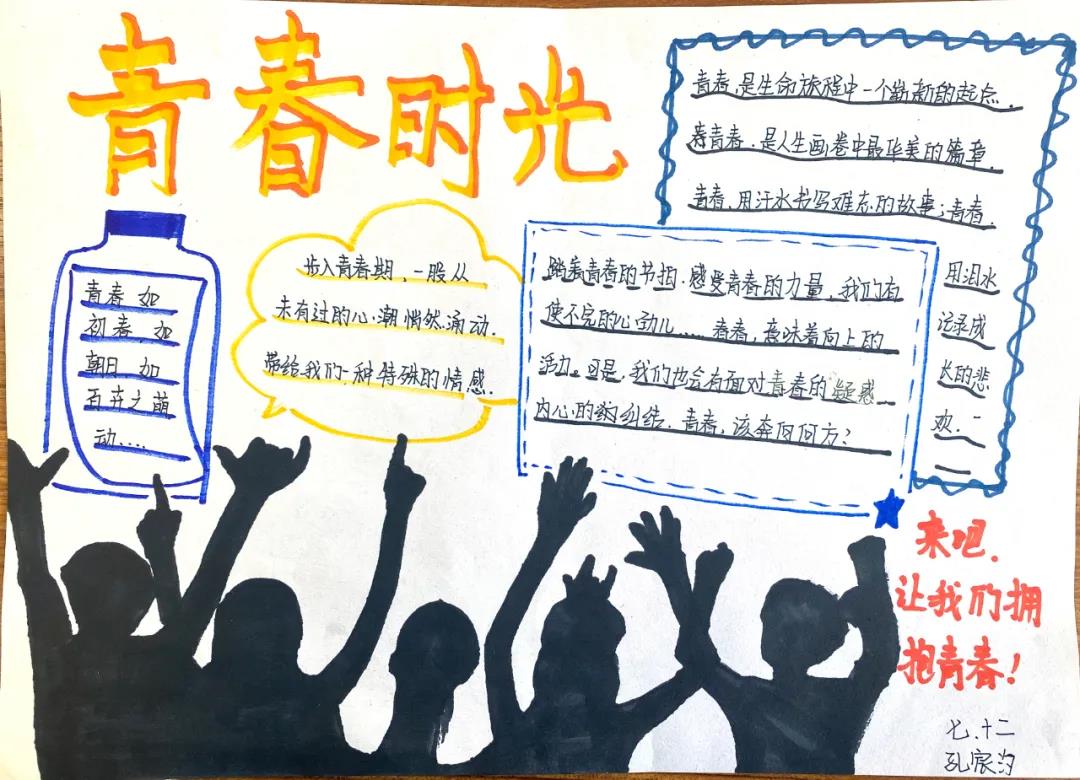 青春时光
青春,是生命旅程中一个崭新的起点.
青春,是人生画卷中最华美的篇章.
青春,用汗水书写难忘的故事;青春,
用泪水
记录成
长的悲
欢.
青春如
初春,如
朝日,如
百卉之萌
动……
步入青春期,一股从
未有过的心潮悄然涌动.
带给我们一种特殊的情感.
踏着青春的节拍.感受青春的力量,我们有
使不完的心劲儿……青春,意味着向上的
活力。可是,我们也会有面对青春的疑惑
内心的纠结.青春,该奔向何方?
来吧.
让我们拥
抱青春!
七.十二
孔家为